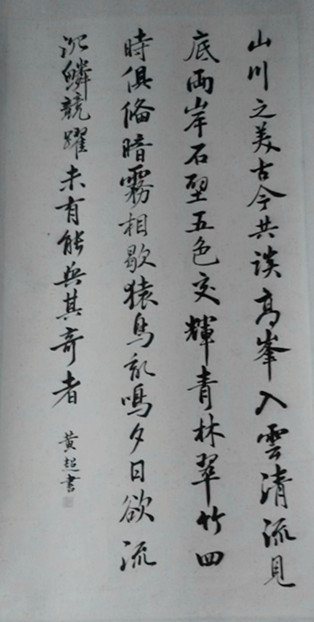 山川之美古今共谈高峯入雲清流見
底兩岸石壁五色交輝青林翠竹四
時俱俻暗霧相歇猿鳥亂鳴夕日欲流
沉鱗競躍未有能與其奇者
黄超書